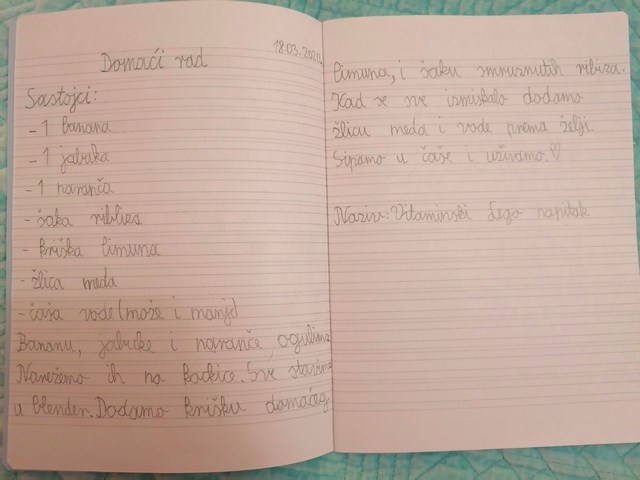 18.03.202
Domaći rad
Sastojci:
- 1 banana
- 1 jabuka
- 1 naranča
- šaka
- kriška limuna
- žlica meda
- čaša vode (može i manje)
Bananu, jabuke i naranče ogulimo
Narežemo ih na kockice. Sve stavimo
u blender. Dodamo krišku domaćeg
limuna, i šaku smrznutih ribiza.
Kad se sve izmiksalo dodamo
žlicu meda i vode prema želji.
Sipamo u čaše i uživamo.♡
Naziv: Vitaminski Lego napitak